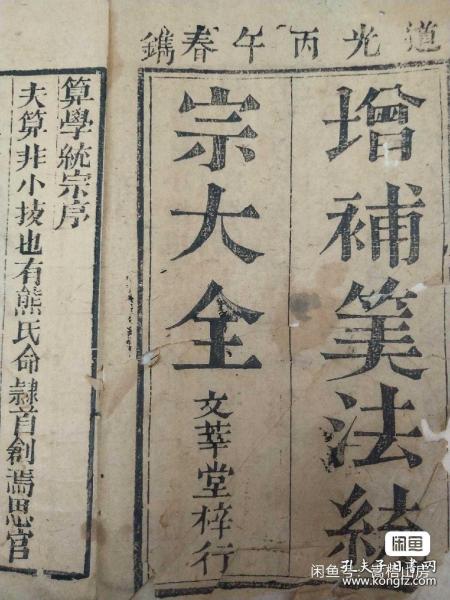 道光丙午春鐫
增補筭法統
宗大全
文莘堂梓行
算學統宗序
夫算非小技也有熊氏命隸首創焉思官
闲鱼
闲鱼号:
山房
孔夫子旧书网
www.kongfz.com